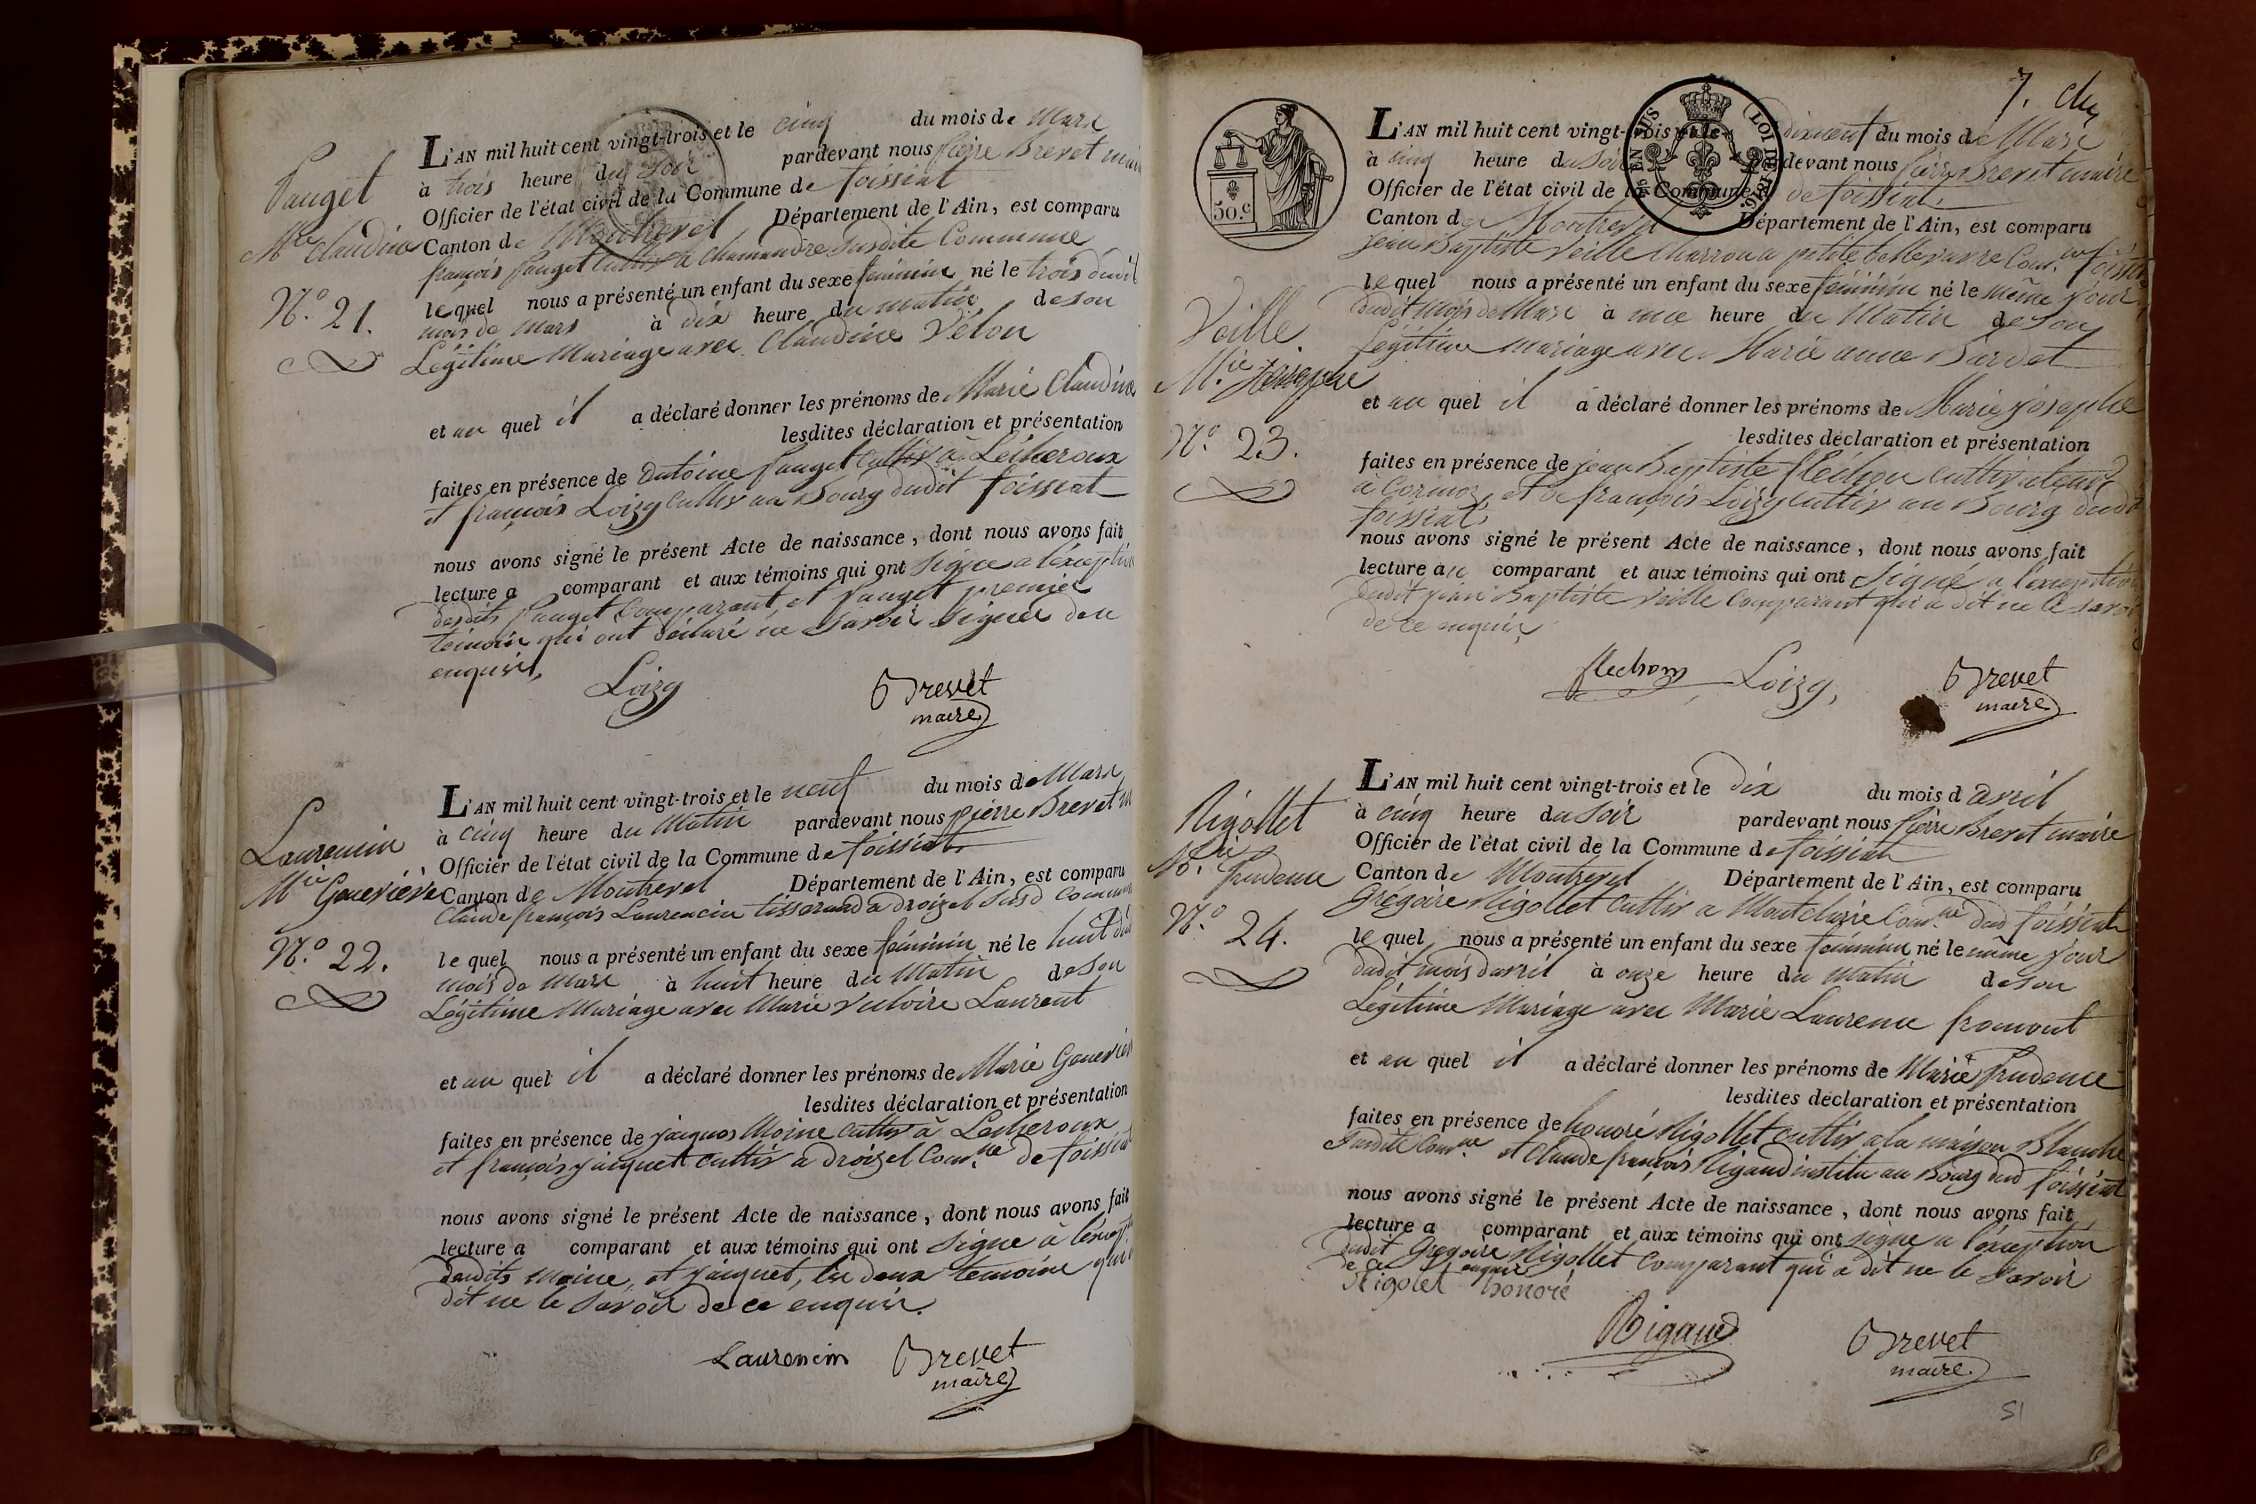 Pauget
Mie Claudine
N.o 21.
L'AN mil huit cent vingt-trois et le cinq du mois de Mars
à trois heure du soir pardevant nous pierre Brevet maire
Officier de l'état civil de la Commune de foissiat
Canton de Montrevel Département de l'Ain, est comparu
françois pauget cultivr a susdite Commune
le quel nous a présenté un enfant du sexe féminin né le trois dudit
mois de Mars à dix heure du matin de son
Légitime Mariage avec Claudine Vélon
et au quel il a déclaré donner les prénoms de Marie Claudine
lesdites déclaration et présentation
faites en présence de Antoine pauget cultivr à Lécheroux
et françois Loizy cultivr au Bourg dudit foissiat
nous avons signé le présent Acte de naissance, dont nous avons fait
lecture a comparant et aux témoins qui ont signé a l'exception
desdits pauget Comparant, et pauget premier
témoin qui ont déclaré ne savoir signer de ce
enquis,
Loizy Brevet
maire
Laurencin
Mie Genevieve
N.o 22.
L'AN mil huit cent vingt-trois et le neuf du mois de Mars
à cinq heure du Matin pardevant nous pierre Brevet m
Officier de l'état civil de la Commune de foissiat
Canton de Montrevel Département de l'Ain, est comparu
Claude françois Laurencin tisserand a droizel susd Commune
le quel nous a présenté un enfant du sexe féminin né le huit du
mois de Mars à huit heure du Matin de son
Légitime Mariage avec Marie victoire Laurent
et au quel il a déclaré donner les prénoms de Marie Genevieve
lesdites déclaration et présentation
faites en présence de jacques Moine cultivr à Lecheroux
et françois jacquet cultivr a droizel Comne de foissiat
nous avons signé le présent Acte de naissance, dont nous avons fait
lecture a comparant et aux témoins qui ont signé à l'except
desdits moine, et jacquet, les deux témoins qui
dit ne le savoir de ce enquis.
Laurencin Brevet
maire
7.
50.c
EN SUS
LOI DE 1816.
Veille
Mie Josephe
N.o 23.
L'AN mil huit cent vingt-trois et le dixneuf du mois de Mars
à cinq heure du soir pardevant nous pierre Brevet maire
Officier de l'état civil de la Commune de foissiat
Canton de Montrevel Département de l'Ain, est comparu
jean Baptiste Veille charron a petite bellevavre Comne foissiat
le quel nous a présenté un enfant du sexe féminin né le même jour
dudit mois de Mars à une heure du Matin de son
Légitime mariage avec Marie anne Bardet
et au quel il a déclaré donner les prénoms de Marie josephe
lesdites déclaration et présentation
faites en présence de jean Baptiste fléchon cultivateur
à Cormoz, et de françois Loizy cultivr au Bourg dudit
foissiat
nous avons signé le présent Acte de naissance, dont nous avons fait
lecture au comparant et aux témoins qui ont signé a l'exception
dudit jean Baptiste Veille comparant qui a dit ne le savoir
de ce enquis
flechon Loizy, Brevet
maire
Rigollet
Mie Prudence
N.o 24.
L'AN mil huit cent vingt-trois et le dix du mois d avril
à cinq heure du soir pardevant nous pierre Brevet maire
Officier de l'état civil de la Commune de foissiat
Canton de Montrevel Département de l'Ain, est comparu
Grégoire Rigollet cultivr a Comne dud foissiat
le quel nous a présenté un enfant du sexe féminin né le même jour
dudit mois davril à onze heure du Matin de son
Légitime Mariage avec Marie Laurence fromont
et au quel il a déclaré donner les prénoms de Marie Prudence
lesdites déclaration et présentation
faites en présence de honoré Rigollet cultivr a la maison Blanche
susdite Comne et Claude françois Rigaud institu au Bourg dud foissiat
nous avons signé le présent Acte de naissance, dont nous avons fait
lecture a comparant et aux témoins qui ont signé a l'exception
dudit Gregoire Rigollet comparant qui a dit ne le savoir
de ce enquis
Rigolet honoré
Rigaud Brevet
maire
51